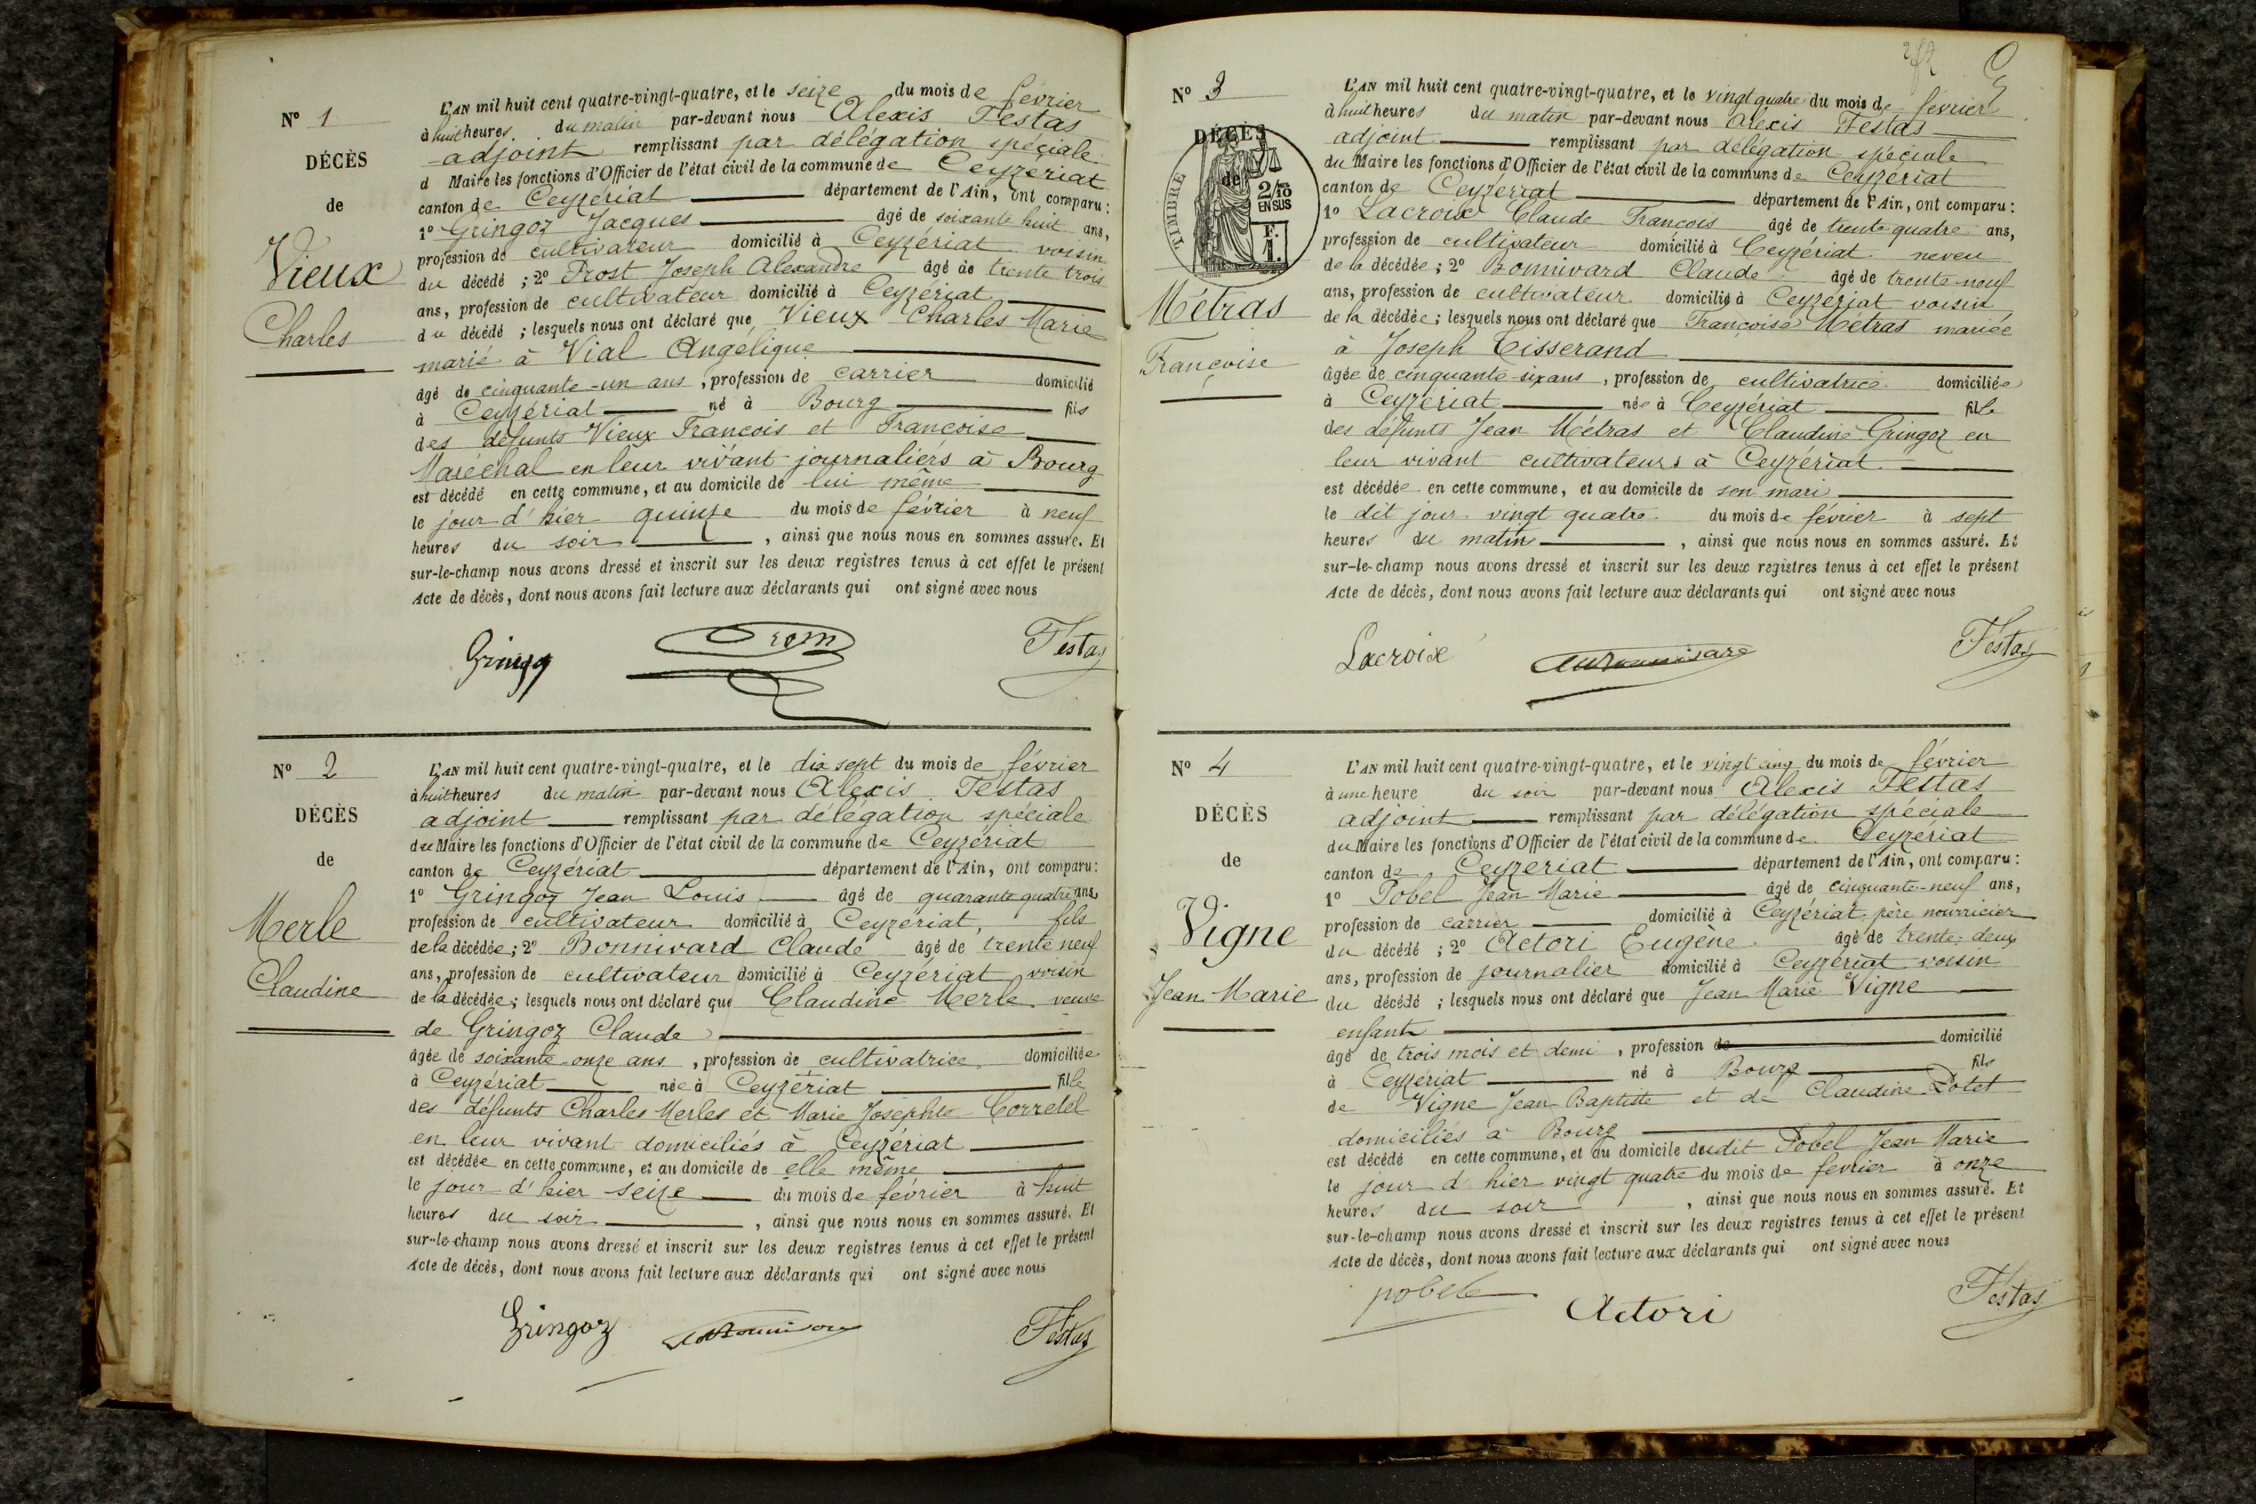 Nº 1
DÉCÈS
de
Vieux
Charles
L'AN mil huit cent quatre-vingt-quatre, et le seize du mois de février
à huit heures du matin par-devant nous Alexis Festas
adjoint remplissant par délégation spéciale
d Maire les fonctions d'Officier de l'état civil de la commune de Ceyzériat
canton de Ceyzériat département de l'Ain, ont comparu :
1º Gringoz Jacques âgé de soixante huit ans,
profession de cultivateur domicilié à Ceyzériat voisin
du décédé ; 2º Prost Joseph Alexandre âgé de trente trois
ans, profession de cultivateur domicilié à Ceyzériat
du décédé ; lesquels nous ont déclaré que Vieux Charles Marie
marié à Vial Angélique
âgé de cinquante-un ans, profession de carrier domicilié
à Ceyzériat né à Bourg fils
des défunts Vieux François et Françoise
Maréchal en leur vivant journaliers à Bourg
est décédé en cette commune, et au domicile de lui même
le jour d'hier quinze du mois de février à neuf
heures du soir, ainsi que nous nous en sommes assuré. Et
sur-le-champ nous avons dressé et inscrit sur les deux registres tenus à cet effet le présent
Acte de décès, dont nous avons fait lecture aux déclarants qui ont signé avec nous
Festas
Nº 2
DÉCÈS
de
Merle
Claudine
L'AN mil huit cent quatre-vingt-quatre, et le dix sept du mois de février
à huit heures du matin par-devant nous Alexis Festas
adjoint remplissant par délégation spéciale
du Maire les fonctions d'Officier de l'état civil de la commune de Ceyzériat
canton de Ceyzériat département de l'Ain, ont comparu :
1º Gringoz Jean Louis âgé de quarante quatre ans,
profession de cultivateur domicilié à Ceyzériat, fils
de la décédée ; 2º Bonnivard Claude âgé de trente neuf
ans, profession de cultivateur domicilié à Ceyzériat voisin
de la décédée ; lesquels nous ont déclaré que Claudine Merle veuve
de Gringoz Claude
âgée de soixante-onze ans, profession de cultivatrice domiciliée
à Ceyzériat née à Ceyzériat fille
des défunts Charles Merles et Marie Josephte Corretel
en leur vivant domiciliés à Ceyzériat
est décédée en cette commune, et au domicile de elle même
le jour d'hier seize du mois de février à huit
heures du soir, ainsi que nous nous en sommes assuré. Et
sur-le-champ nous avons dressé et inscrit sur les deux registres tenus à cet effet le présent
Acte de décès, dont nous avons fait lecture aux déclarants qui ont signé avec nous
Gringoz Festas
Nº 3
DÉCÈS
de
TIMBRE
2/10
EN SUS
F.
1.
Métras
Françoise
L'AN mil huit cent quatre-vingt-quatre, et le vingt quatre du mois de février
à huit heures du matin par-devant nous Alexis Festas
adjoint remplissant par délégation spéciale
du Maire les fonctions d'Officier de l'état civil de la commune de Ceyzériat
canton de Ceyzériat département de l'Ain, ont comparu :
1º Lacroix Claude François âgé de trente quatre ans,
profession de cultivateur domicilié à Ceyzériat neveu
de la décédée ; 2º Bonnivard Claude âgé de trente-neuf
ans, profession de cultivateur domicilié à Ceyzériat voisin
de la décédée ; lesquels nous ont déclaré que Françoise Métras mariée
à Joseph Tisserand
âgée de cinquante-six ans, profession de cultivatrice domiciliée
à Ceyzériat née à Ceyzériat fille
des défunts Jean Métras et Claudine Gringoz en
leur vivant cultivateurs à Ceyzériat
est décédée en cette commune, et au domicile de son mari
le dit jour vingt quatre du mois de février à sept
heures du matin, ainsi que nous nous en sommes assuré. Et
sur-le-champ nous avons dressé et inscrit sur les deux registres tenus à cet effet le présent
Acte de décès, dont nous avons fait lecture aux déclarants qui ont signé avec nous
Lacroix Festas
Nº 4
DÉCÈS
de
Vigne
Jean Marie
L'AN mil huit cent quatre-vingt-quatre, et le vingt cinq du mois de février
à une heure du soir par-devant nous Alexis Festas
adjoint remplissant par délégation spéciale
du Maire les fonctions d'Officier de l'état civil de la commune de Ceyzériat
canton de Ceyzeriat département de l'Ain, ont comparu :
1º Pobel Jean Marie âgé de cinquante-neuf ans,
profession de carrier domicilié à Ceyzériat, père nourricier
du décédé ; 2º Actori Eugène âgé de trente-deux
ans, profession de journalier domicilié à Ceyzériat voisin
du décédé ; lesquels nous ont déclaré que Jean Marie Vigne
enfant
âgé de trois mois et demi, profession de domicilié
à Ceyzériat né à Bourg fils
de Vigne Jean Baptiste et de Claudine Potet
domiciliés à Bourg
est décédé en cette commune, et au domicile dudit Pobel Jean Marie
le jour d'hier vingt quatre du mois de février à onze
heures du soir, ainsi que nous nous en sommes assuré. Et
sur-le-champ nous avons dressé et inscrit sur les deux registres tenus à cet effet le présent
Acte de décès, dont nous avons fait lecture aux déclarants qui ont signé avec nous
pobel Actori Festas